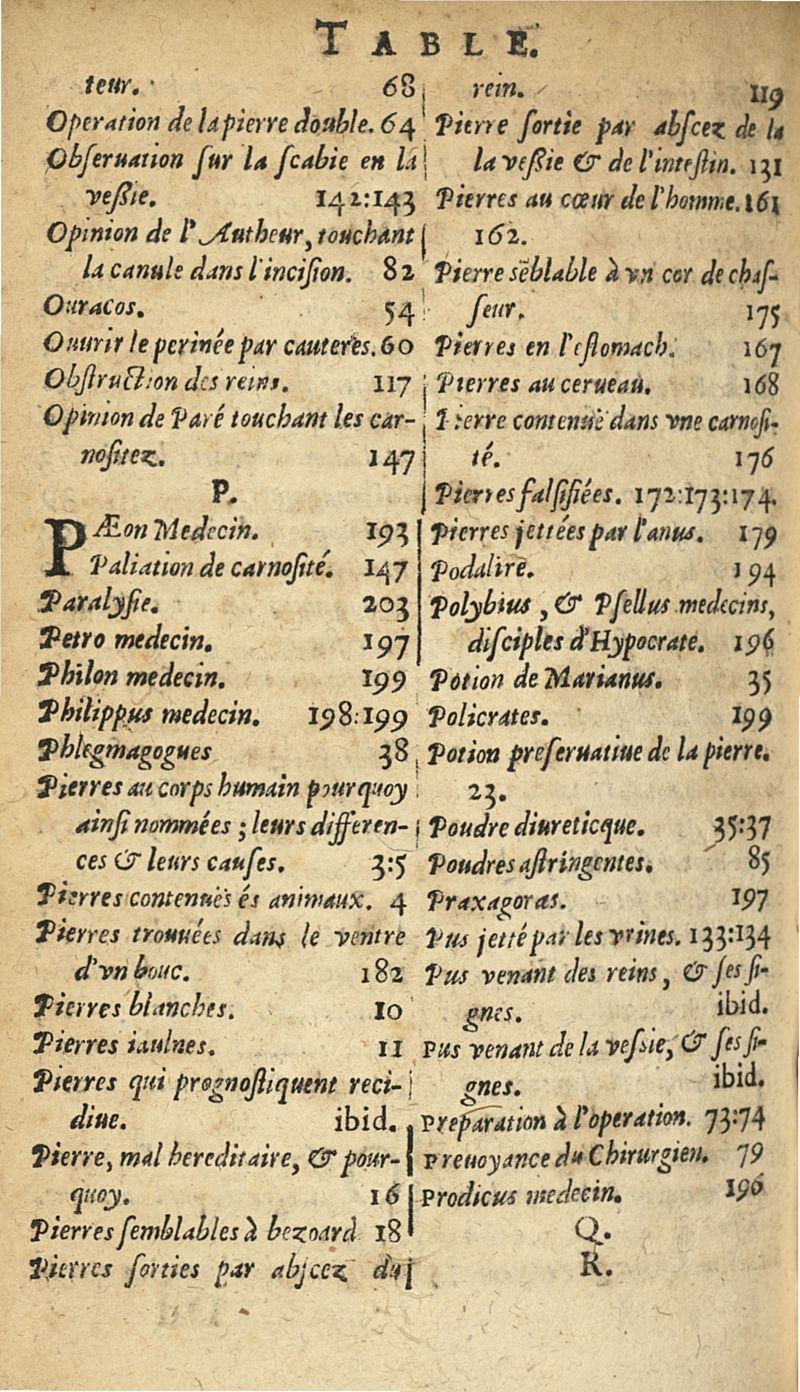 TABLE.
teur. 68
Operation de la pierre double. 64
Obſeruation ſur la ſcabie en la
veſſie. 142:143
Opinion de l'Autheur, touchant
la canule dans l'inciſion. 82
Ouracos. 54
Ouurir le perinée par cauteres. 60
Obſtruction des reins. 117
Opinion de Paré touchant les car-
noſitez. 147
P.
PÆon Medecin. 193
Paliation de carnoſité. 147
Paralyſie. 203
Petro medecin. 197
Philon medecin. 199
Philippus medecin. 198:199
Phlegmagogues 38
Pierres au corps humain pourquoy
ainſi nommées ; leurs differen-
ces & leurs cauſes. 3:5
Pierres contenuës és animaux. 4
Pierres trouuées dans le ventre
d'vn bouc. 182
Pierres blanches. 10
Pierres iaulnes. 11
Pierres qui prognoſtiquent reci-
diue. ibid.
Pierre, mal hereditaire, & pour-
quoy. 16
Pierres ſemblables à bezoard 18
Pierres ſorties par abſcez du
rein. 119
Pierre ſortie par abſcez de la
la veſſie & de l'inteſtin. 131
Pierres au cœur de l'homme. 161
162.
Pierre sẽblable à vn cor de chaſ-
ſeur. 175
Pierres en l'eſtomach. 167
Pierres au cerueau. 168
Pierre contenuë dans vne carnoſi-
té. 176
Pierres falſifiées. 172:173:174.
Pierres jettées par l'anus. 179
Podalire. 194
Polybius, & Pſellus medecins,
diſciples d'Hypocrate. 196
Potion de Marianus. 35
Policrates. 199
Potion preſeruatiue de la pierre.
23.
Poudre diureticque. 35:37
Poudres aſtringentes. 85
Praxagoras. 197
Pus jetté par les vrines. 133:134
Pus venant des reins, & ſes ſi-
gnes. ibid.
Pus venant de la veſſie, & ſes ſi-
gnes. ibid.
Preparation à l'operation. 73:74
Preuoyance du Chirurgien. 79
Prodicus medecin. 196
Q.
R.